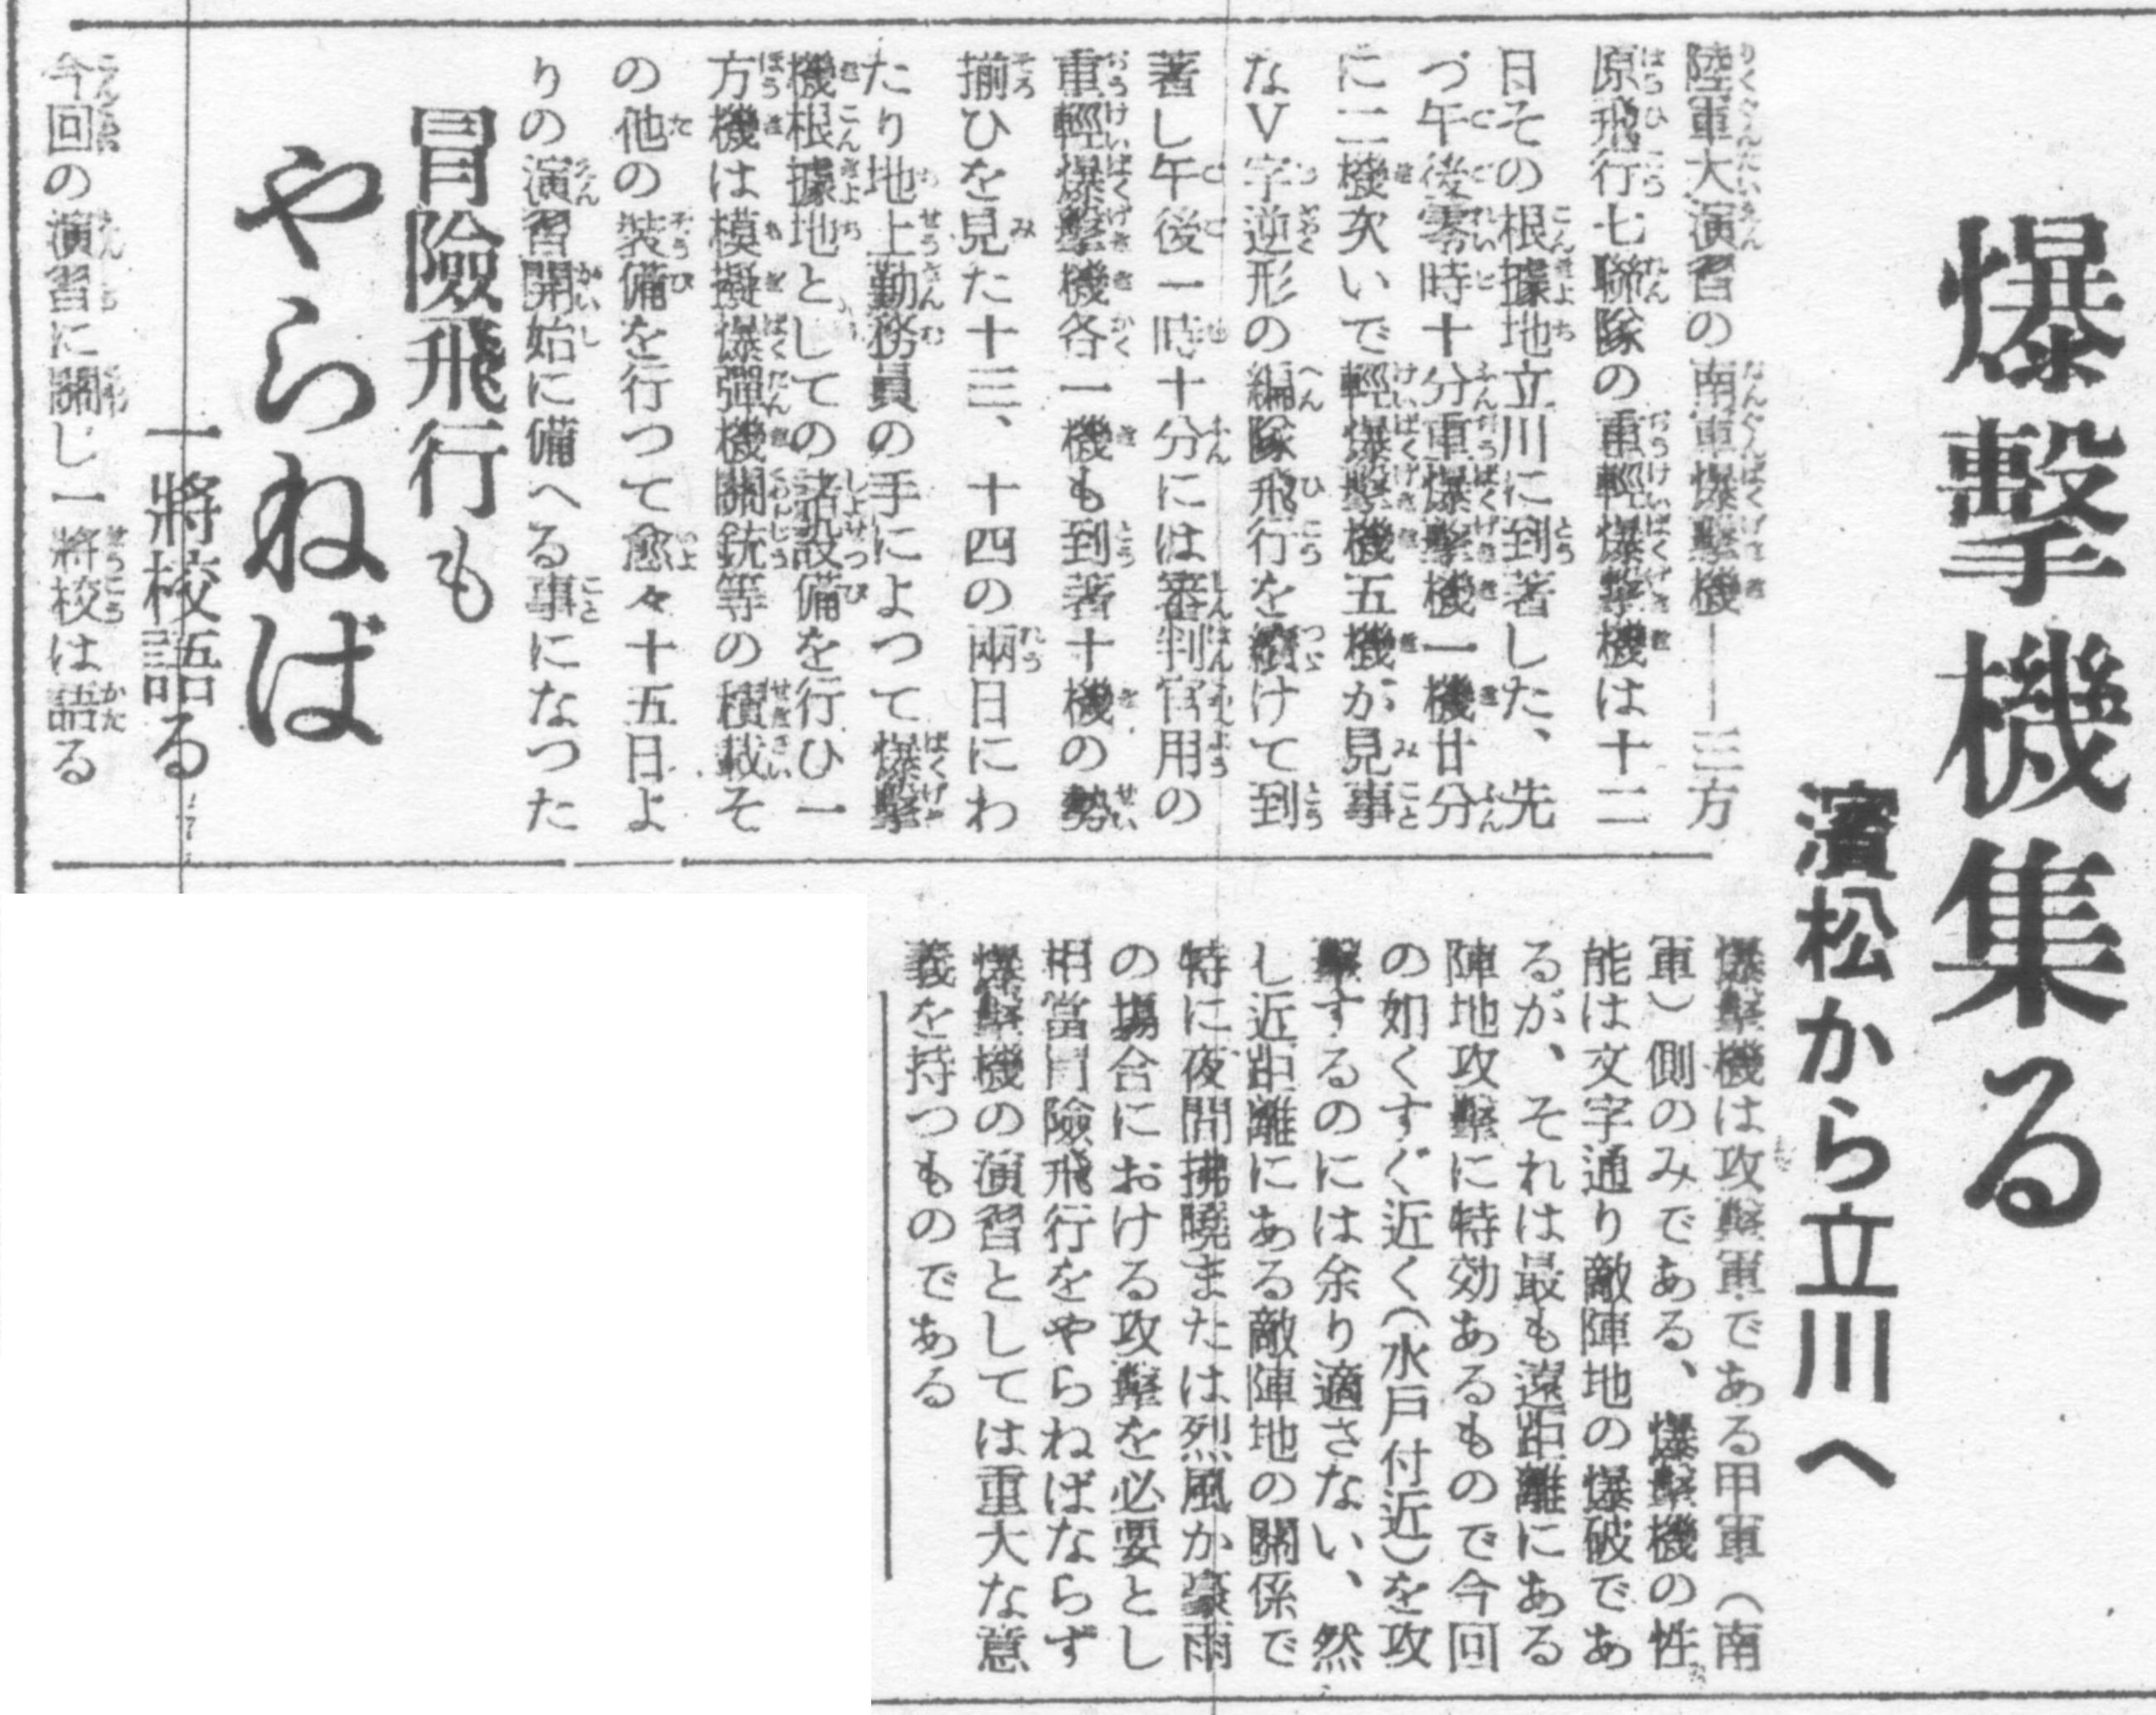 爆擊機集る
濱松から立川へ
陸軍大演習の南軍爆擊機――三方
原飛行七聯隊の重輕爆擊機は十二
日その根據地立川に到著した、先
づ午後零時十分重爆擊機一機廿分
に二機次いで輕爆擊機五機が見事
なV字逆形の編隊飛行を續けて到
著し午後一時十分には審判官用の
重輕爆擊機各一機も到著十機の勢
揃ひを見た十三、十四の兩日にわ
たり地上勤務員の手によつて爆擊
機根據地としての諸設備を行ひ一
方機は模擬爆彈機關銃等の積載そ
の他の裝備を行つて愈々十五日よ
りの演習開始に備へる事になつた
冒險飛行も
やらねば
一將校語る
今回の演習に關し一將校は語る
爆擊機は攻擊軍である甲軍（南
軍）側のみである、爆擊機の性
能は文字通り敵陣地の爆破であ
るが、それは最も遠距離にある
陣地攻擊に特効あるもので今回
の如くすぐ近く（水戸付近）を攻
擊するのには余り適さない、然
し近距離にある敵陣地の關係で
特に夜間拂曉または烈風か豪雨
の場合における攻擊を必要とし
相當冒險飛行をやらねばならず
爆擊機の演習としては重大な意
義を持つものである